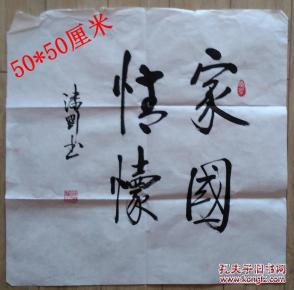 50*50厘米
家國
情懷
孔夫子旧书网